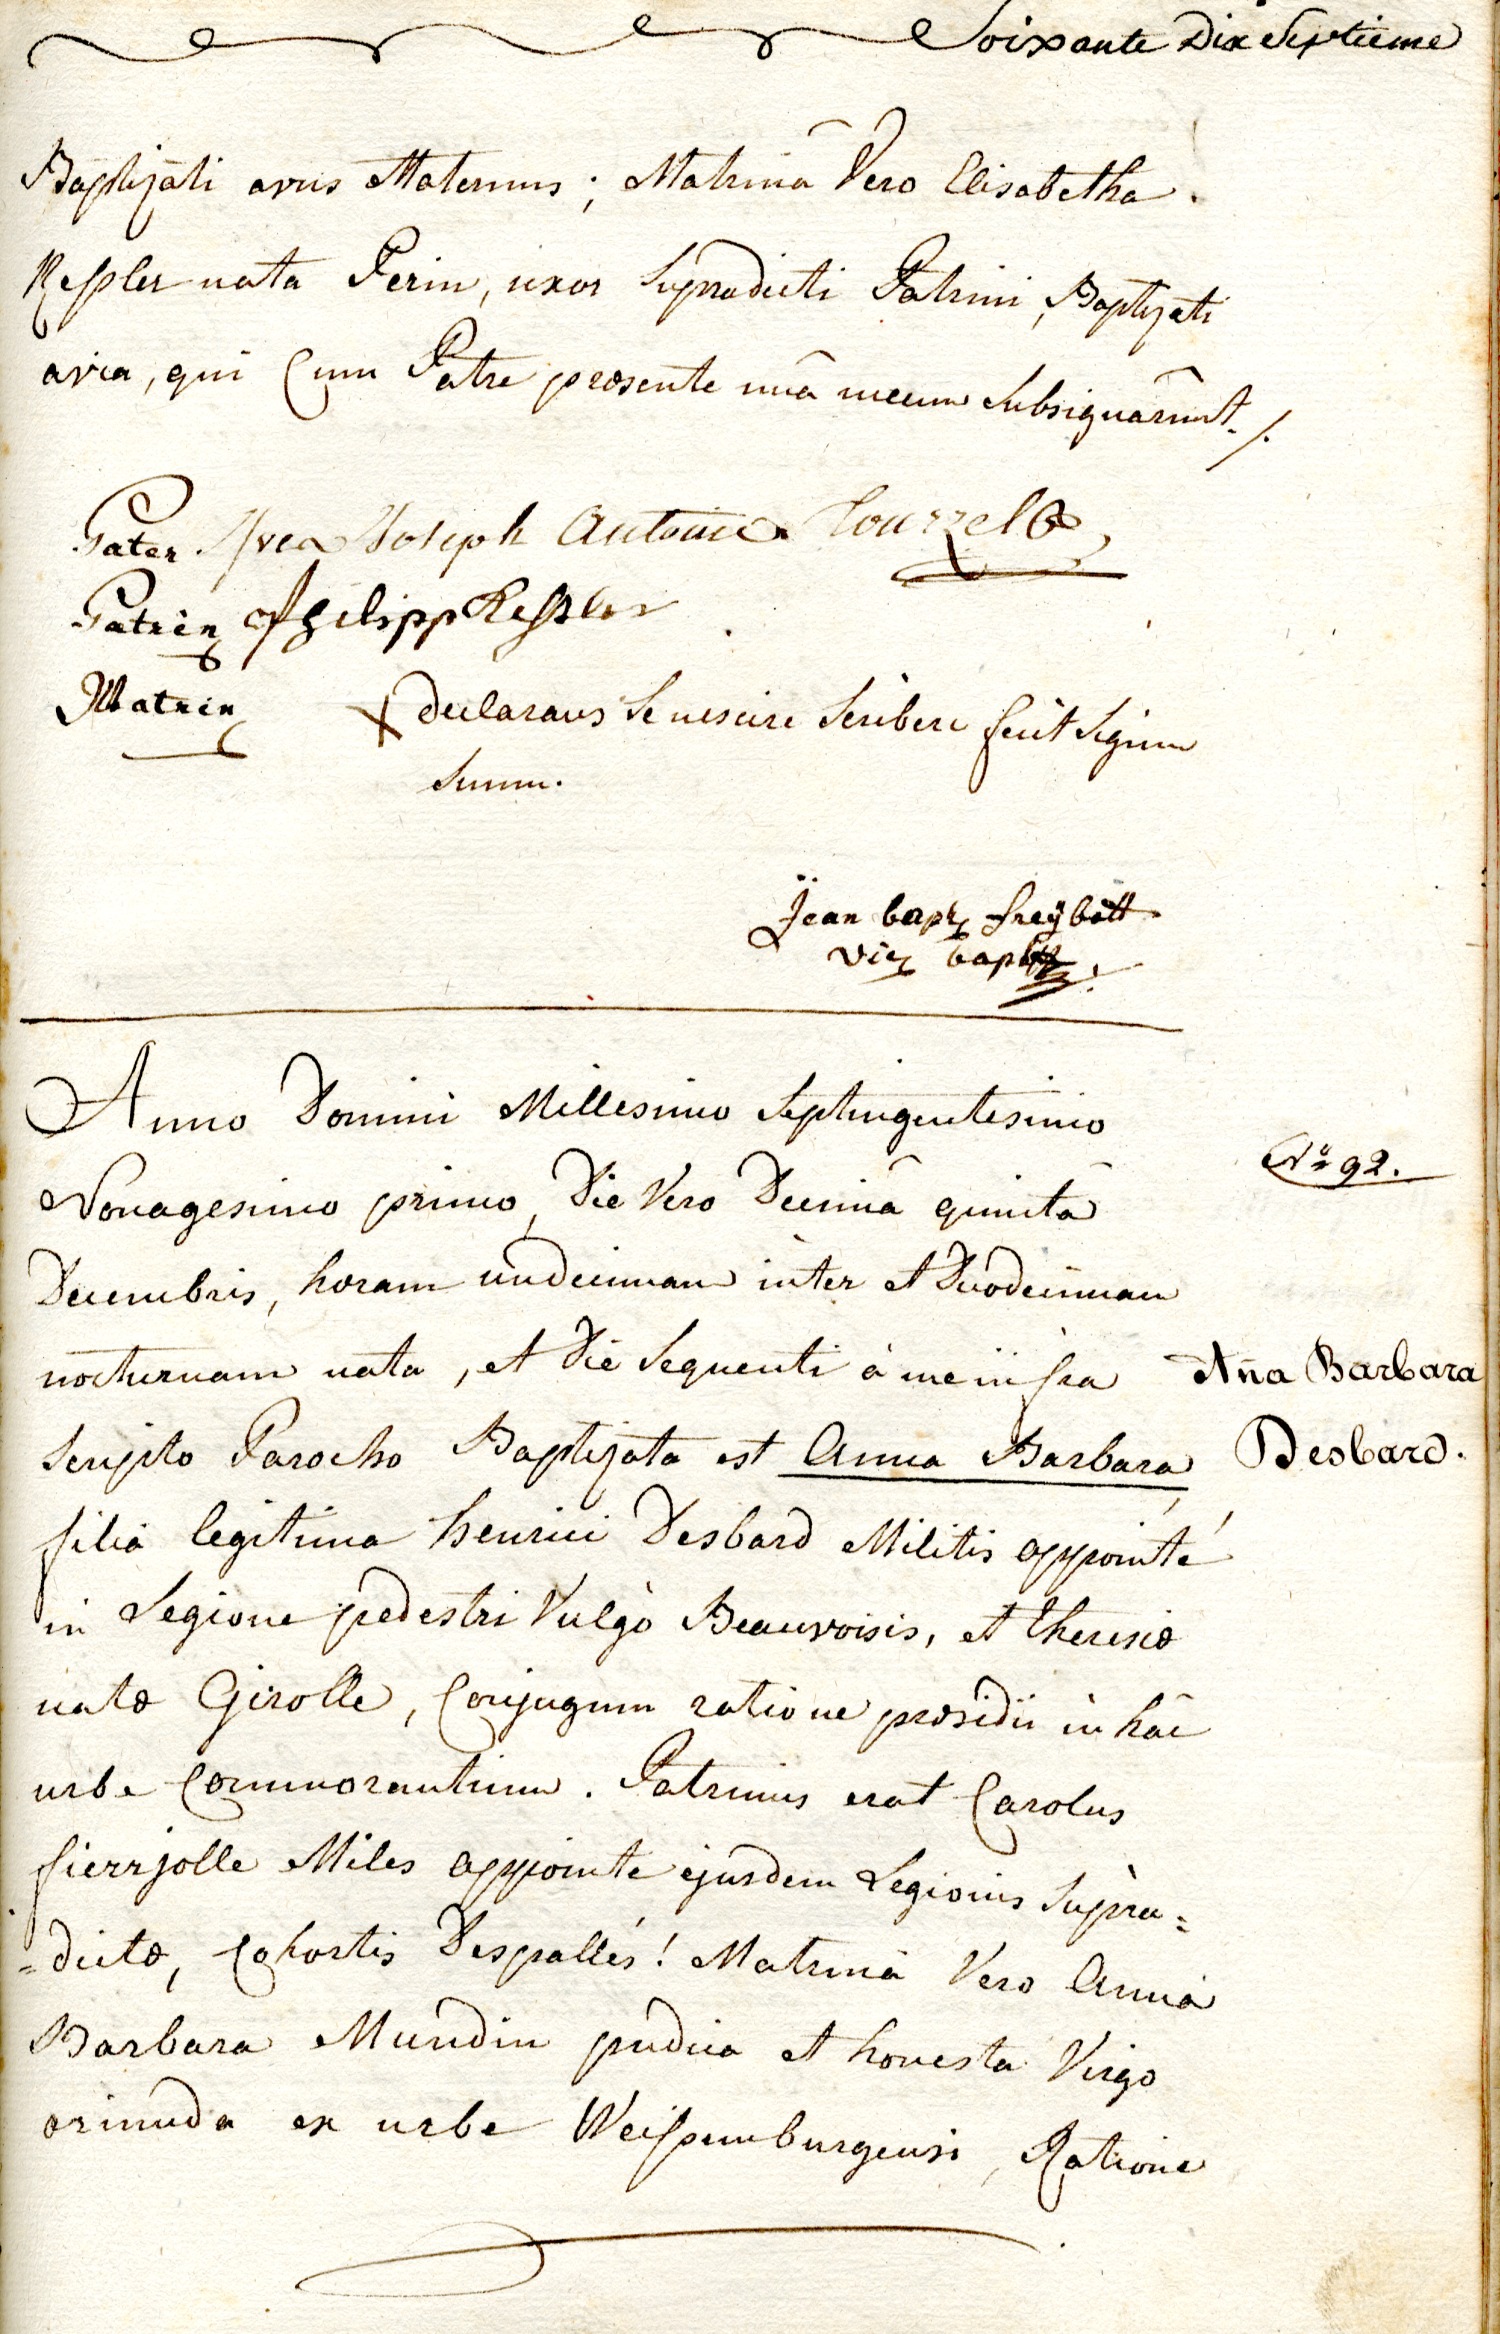 Soixante Dix Septieme
Baptizati avus Maternus; Matrina Vero Elisabetha
Kessler nata Perin, uxor Supradicti Patrini, Baptizati
avia, qui Cum Patre præsente unâ mecum Subsignârunt ./.
Pater Joseph Antoine
Patrin Philipp Kessler
Matrin X declarans Se nescire Scribere fecit Signum
Suum.
Jean bapt freÿbott
vic bapt
Anno Domini Millesimo Septingentesimo
Nonagesimo primo, Die Vero Decimâ quintâ
Decembris, horam undecimam inter et Duodecimam
nocturnam nata, et Die Sequenti à me infra
Scripto Parocho Baptizata est Anna Barbara,
filia legitima henrici Desbard Militis appointé
in Legione pedestri Vulgò Beauvoisis, et theresiæ
natæ Girolle, Conjugum ratione præsidii in hâc
urbe Commorantium. Patrinus erat Carolus
fierrjolle Miles appointe ejusdem Legionis Supra=
=dictæ, Cohortis Despallés! Matrina Vero Anna
Barbara Mundin pudica et honesta Virgo
oriunda ex urbe Weissemburgensi, Ratione
N° 92.
Aña Barbara
Desbard.